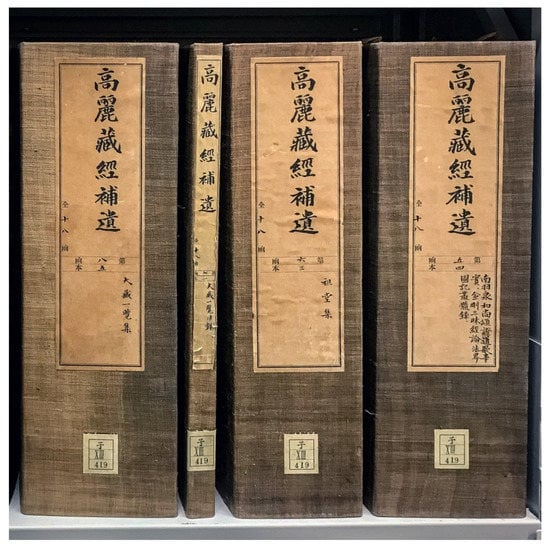 高麗藏經補遺
全十八函
第八五函本
大藏一覽集
子
XIII
419
高麗藏經補遺
全十八函
大藏一覽目錄
子
XIII
419
高麗藏經補遺
全十八函
第六三函本
祖堂集
子
XIII
419
高麗藏經補遺
全十八函
第五四函本
南明泉和尚頌證道歌事
實、金剛三昧經論法界
圖記叢髓錄
子
XIII
419